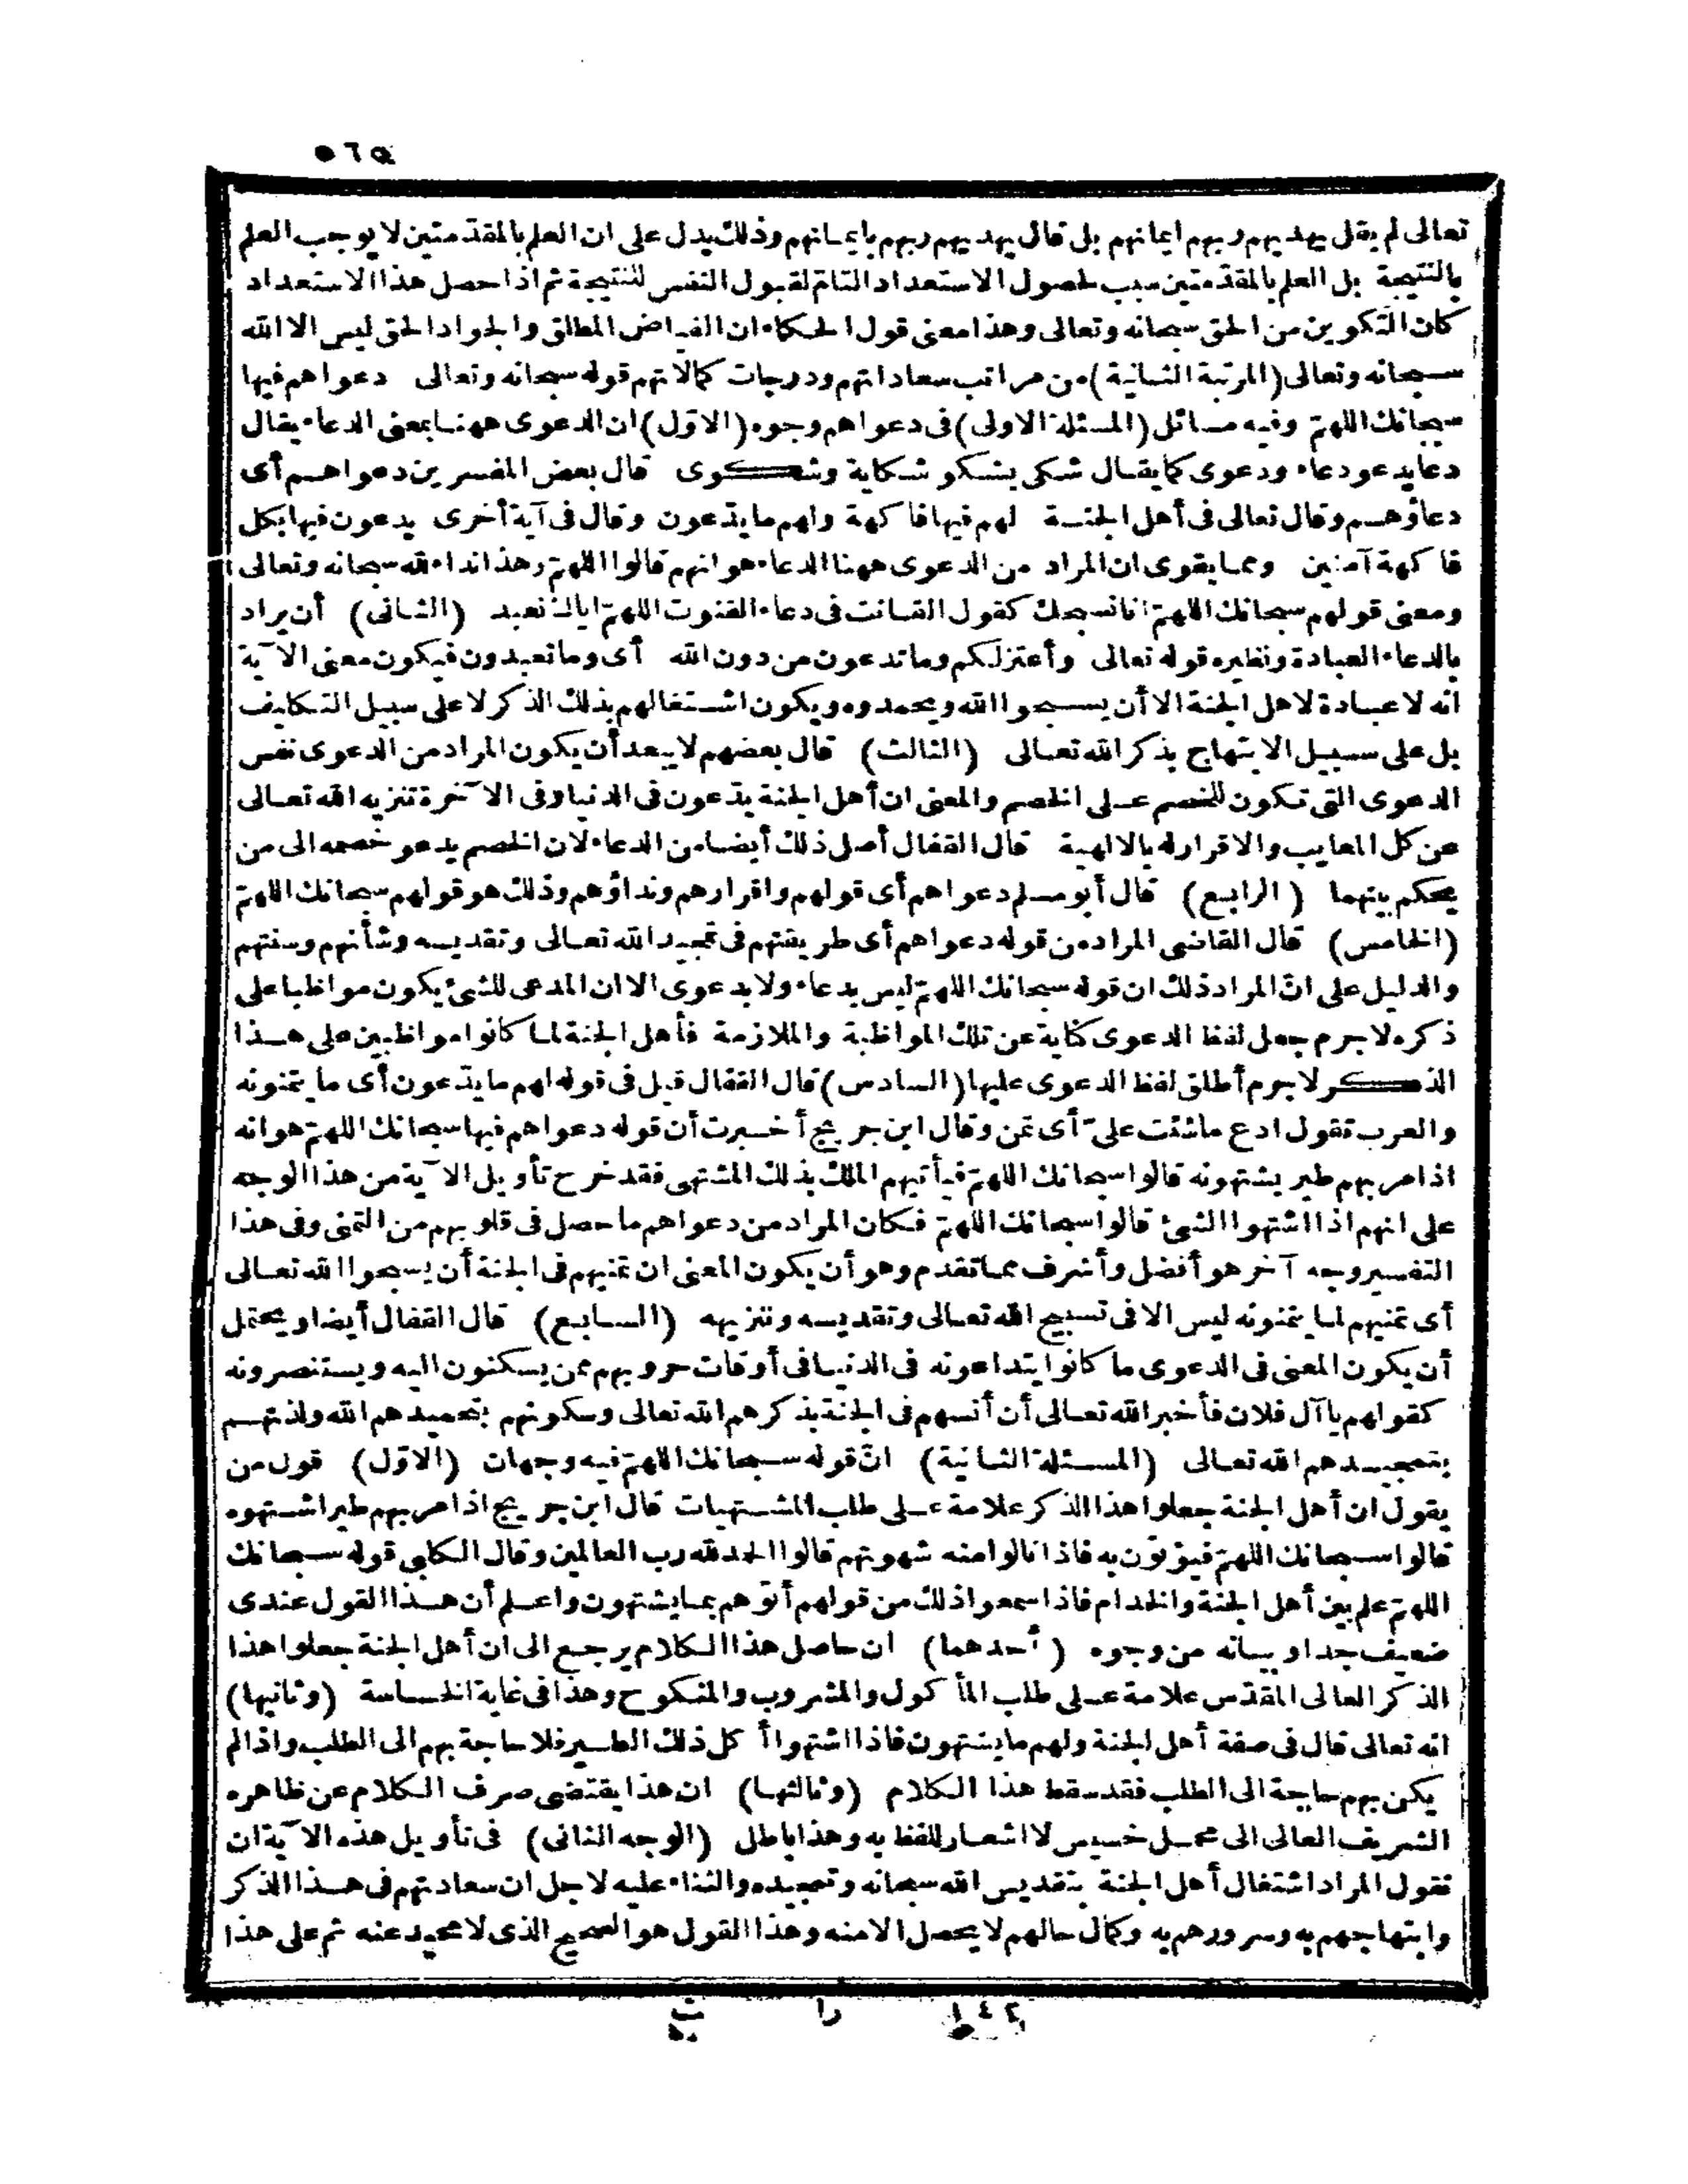 ٥٦٥
تعالى لم يقل يهديهم ربهم ايمانهم بل قال يهديهم ربهم بايمانهم وذلك يدل على ان العلم بالمقدّمتين لا يوجب العلم
بالنتيجة بل العلم بالمقدّمتين سبب لحصول الاستعداد التامّ لقبول النفس للنتيجة ثم اذا حصل هذا الاستعداد
كان التكوين من الحق سبحانه وتعالى وهذا معنى قول الحكماء ان الفياض المطلق والجواد الحق ليس الا الله
سبحانه وتعالى (المرتبة الثانية) من مراتب سعاداتهم ودرجات كمالاتهم قوله سبحانه وتعالى دعواهم فيها
سبحانك اللهمّ وفيه مسائل (المسئلة الاولى) فى دعواهم وجوه (الاوّل) ان الدعوى ههنا بمعنى الدعاء يقال
دعا يدعو دعاء ودعوى كما يقال شكى يشكو شكاية وشكوى قال بعض المفسرين دعواهم أى
دعاؤهم وقال تعالى فى أهل الجنة لهم فيها فاكهة ولهم ما يدّعون وقال فى آية أخرى يدعون فيها بكل
فاكهة آمنين ومما يقوى ان المراد من الدعوى ههنا الدعاء هو انهم قالوا اللهمّ وهذا نداء لله سبحانه وتعالى
ومعنى قولهم سبحانك اللهمّ انا نسبحك كقول القانت فى دعاء القنوت اللهمّ اياك نعبد (الثانى) أن يراد
بالدعاء العبادة ونظيره قوله تعالى وأعتزلكم وما تدعون من دون الله أى وما تعبدون فيكون معنى الآية
انه لا عبادة لاهل الجنة الا أن يسبحوا الله ويحمدوه ويكون اشتغالهم بذلك الذكر لا على سبيل التكليف
بل على سبيل الابتهاج بذكر الله تعالى (الثالث) قال بعضهم لا يبعد أن يكون المراد من الدعوى نفس
الدعوى التى تكون للخصم على الخصم والمعنى ان أهل الجنة يدّعون فى الدنيا وفى الآخرة تنزيه الله تعالى
عن كل المعايب والاقرار له بالالهية قال القفال أصل ذلك أيضا من الدعاء لان الخصم يدعو خصمه الى من
يحكم بينهما (الرابع) قال أبو مسلم دعواهم أى قولهم واقرارهم ونداؤهم وذلك هو قولهم سبحانك اللهمّ
(الخامس) قال القاضى المراد من قوله دعواهم أى طريقتهم فى تمجيد الله تعالى وتقديسه وشأنهم وسنتهم
والدليل على انّ المراد ذلك ان قوله سبحانك اللهمّ ليس بدعاء ولا بدعوى الا ان المدعى للشئ يكون مواظبا على
ذكره لا جرم جعل لفظ الدعوى كناية عن تلك المواظبة والملازمة فأهل الجنة لما كانوا مواظبين على هذا
الذكر لا جرم أطلق لفظ الدعوى عليها (السادس) قال القفال قيل فى قوله لهم ما يدّعون أى ما يتمنونه
والعرب تقول ادع ما شئت علىّ أى تمن وقال ابن جريج أخبرت أن قوله دعواهم فيها سبحانك اللهمّ هو انه
اذا مر بهم طير يشتهونه قالوا سبحانك اللهمّ فيأتيهم الملك بذلك المشتهى فقد خرح تأويل الآية من هذا الوجه
على انهم اذا اشتهوا الشئ قالوا سبحانك اللهمّ فكان المراد من دعواهم ما حصل فى قلوبهم من التمنى وفى هذا
التفسير وجه آخر هو أفضل وأشرف مما تقدم وهو أن يكون المعنى ان تمنيهم فى الجنة أن يسبحوا الله تعالى
أى تمنيهم لما يتمنونه ليس الا فى تسبيح الله تعالى وتقديسه وتنزيهه (السابع) قال القفال أيضا ويحتمل
أن يكون المعنى فى الدعوى ما كانوا يتداعونه فى الدنيا فى أوقات حروبهم ممن يسكنون اليه ويستنصرونه
كقولهم يا آل فلان فأخبر الله تعالى أن أنسهم فى الجنة بذكرهم الله تعالى وسكونهم بتحميدهم الله ولذتهم
بتمجيدهم الله تعالى (المسئلة الثانية) انّ قوله سبحانك اللهمّ فيه وجهان (الاوّل) قول من
يقول ان أهل الجنة جعلوا هذا الذكر علامة على طلب المشتهيات قال ابن جريج اذا مر بهم طير اشتهوه
قالوا سبحانك اللهمّ فيؤتون به فاذا نالوا منه شهوتهم قالوا الحمد لله رب العالمين وقال الكلبى قوله سبحانك
اللهمّ علم بين أهل الجنة والخدام فاذا سمعوا ذلك من قولهم أتوّهم بما يشتهون واعلم أن هذا القول عندى
ضعيف جدا وبيانه من وجوه (أحدهما) ان حاصل هذا الكلام يرجع الى ان أهل الجنة جعلوا هذا
الذكر العالى المقدّس علامة على طلب المأكول والمشروب والمنكوح وهذا فى غاية الخساسة (وثانيها)
انه تعالى قال فى صفة أهل الجنة ولهم ما يشتهون فاذا اشتهوا أكل ذلك الطير فلا حاجة بهم الى الطلب واذا لم
يكن بهم حاجة الى الطلب فقد سقط هذا الكلام (وثالثها) ان هذا يقتضى صرف الكلام عن ظاهره
الشريف العالى الى محمل خسيس لا اشعار للفظ به وهذا باطل (الوجه الثانى) فى تأويل هذه الآية ان
نقول المراد اشتغال أهل الجنة بتقديس الله سبحانه وتمجيده والثناء عليه لاجل ان سعادتهم فى هذا الذكر
وابتهاجهم به وسرورهم به وكمال حالهم لا يحصل الا منه وهذا القول هو الصحيح الذى لا محيد عنه ثم على هذا
١٤٢ را